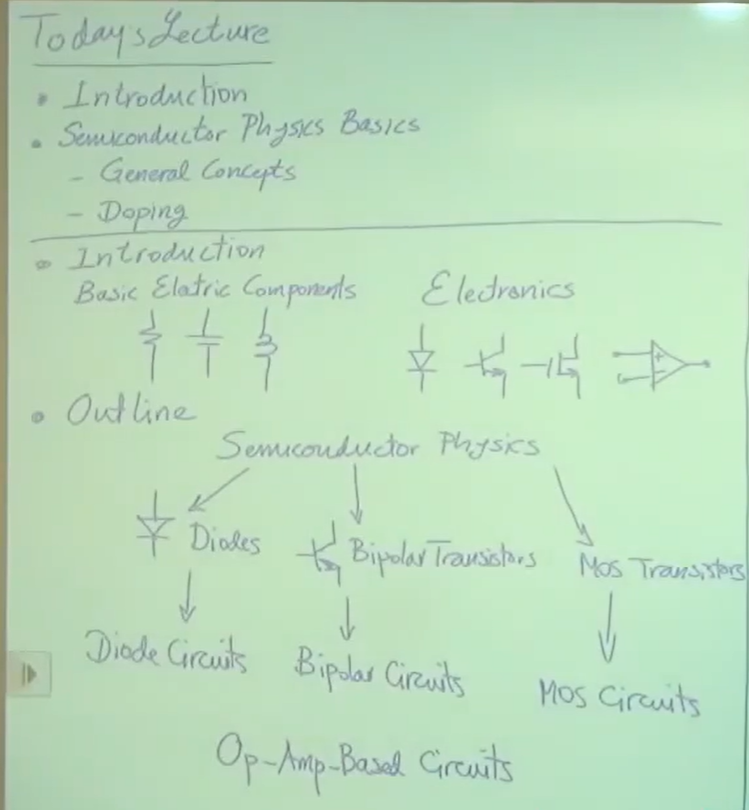 Today's Lecture
• Introduction
• Semiconductor Physics Basics
- General Concepts
- Doping
• Introduction
Basic Elatric Components Electronics
• Outline
Semiconductor Physics
Diodes Bipolar Transistors MOS Transistors
Diode Circuits Bipolar Circuits MOS Circuits
Op-Amp-Based Circuits